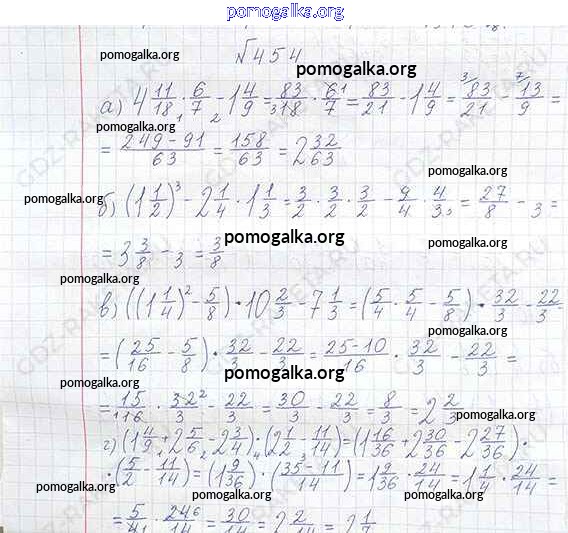 pomogalka.org
№454
pomogalka.org pomogalka.org
а) 4 11/18 · 6/7 - 1 4/9 = 83/18 · 6/7 = 83/21 - 1 4/9 = 83/21 - 13/9 =
pomogalka.org
= 249-91/63 = 158/63 = 2 32/63
pomogalka.org
pomogalka.org
б) (1 1/2)³ - 2 1/4 · 1 1/3 = 3/2 · 3/2 · 3/2 - 9/4 · 4/3 = 27/8 - 3 =
pomogalka.org
= 3 3/8 - 3 = 3/8
pomogalka.org
в) ((1 1/4)² - 5/8) · 10 2/3 - 7 1/3 = (5/4 · 5/4 - 5/8) · 32/3 - 22/3
pomogalka.org
= (25/16 - 5/8) · 32/3 - 22/3 = 25-10/16 · 32/3 - 22/3 =
pomogalka.org pomogalka.org
= 15/16 · 32/3 - 22/3 = 30/3 - 22/3 = 8/3 = 2 2/3
pomogalka.org
г) (1 4/9 + 2 5/6 - 2 3/4) · (2 1/2 - 11/14) = (1 16/36 + 2 30/36 - 2 27/36) ·
· (5/2 - 11/14) = (1 9/36) · (35-11/14) = 1 9/36 · 24/14 = 1 1/4 · 24/14 =
pomogalka.org pomogalka.org pomogalka.org
= 5/4 · 24/14 = 30/14 = 2 2/14 = 2 1/7